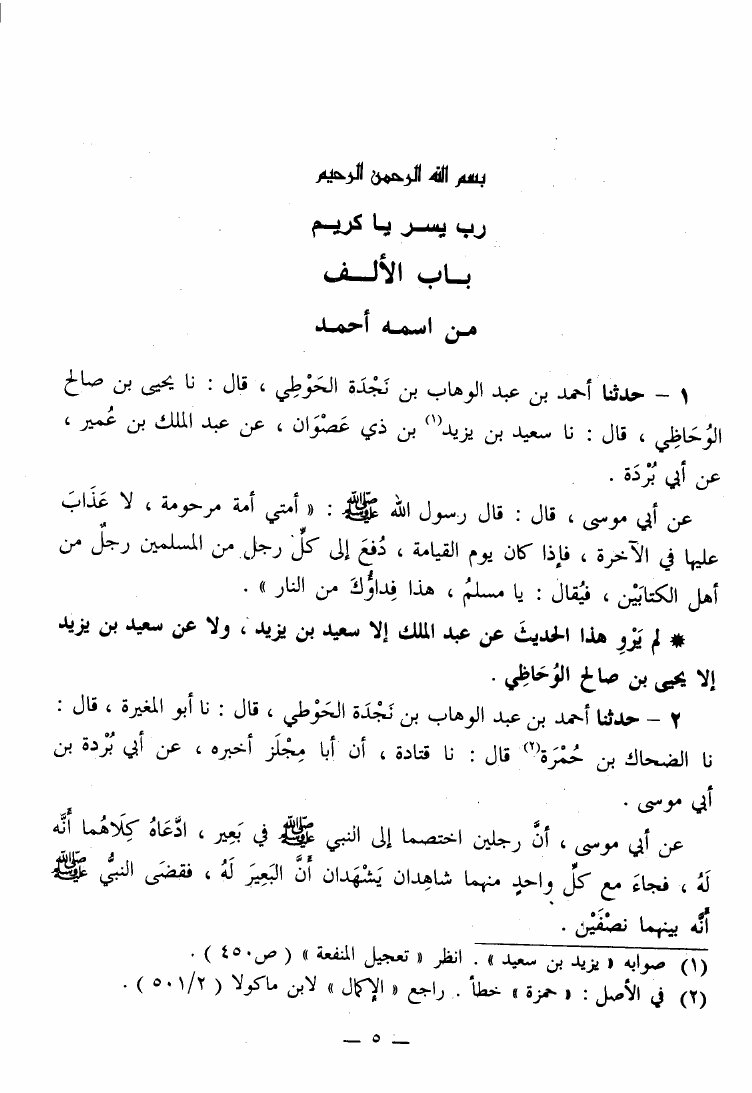 بسم الله الرحمن الرحيم
رب يسر يا كريم
باب الألف
من اسمه أحمد
١ – حدثنا أحمد بن عبد الوهاب بن نَجْدَة الحَوْطِي ، قال : نا يحيى بن صالح
الوُحَاظِي ، قال : نا سعيد بن يزيد(١) بن ذي عَصْوَان ، عن عبد الملك بن عُمير ،
عن أبي بُرْدَة .
عن أبي موسى ، قال : قال رسول الله ﷺ : « أمتي أمة مرحومة ، لا عَذَابَ
عليها في الآخرة ، فإذا كان يوم القيامة ، دُفعَ إلى كلِّ رجل من المسلمين رجلٌ من
أهل الكتابَيْن ، فيُقال : يا مسلمُ ، هذا فِداؤُكَ من النار » .
* لم يَرْوِ هذا الحديثَ عن عبد الملك إلا سعيد بن يزيد ، ولا عن سعيد بن يزيد
إلا يحيى بن صالح الوُحَاظِي .
٢ – حدثنا أحمد بن عبد الوهاب بن نَجْدَة الحَوْطِي ، قال : نا أبو المغيرة ، قال :
نا الضحاك بن حُمْرَة(٢) قال : نا قتادة ، أن أبا مِجْلَز أخبره ، عن أبي بُرْدة بن
أبي موسى .
عن أبي موسى ، أنَّ رجلين اختصما إلى النبي ﷺ في بَعِير ، ادَّعَاهُ كِلَاهُما أَنَّه
لَهُ ، فجاءَ مع كلِّ واحدٍ منهما شاهِدان يَشْهَدان أَنَّ البَعِيرَ لَهُ ، فقضَى النبيُّ ﷺ
أَنَّه بينهما نصْفَيْن .
(١) صوابه « يزيد بن سعيد » . انظر « تعجيل المنفعة » ( ص٤٥٠ ) .
(٢) في الأصل : « حمزة » خطأ . راجع « الإكمال » لابن ماكولا ( ٥٠١/٢ ) .
— ٥ —